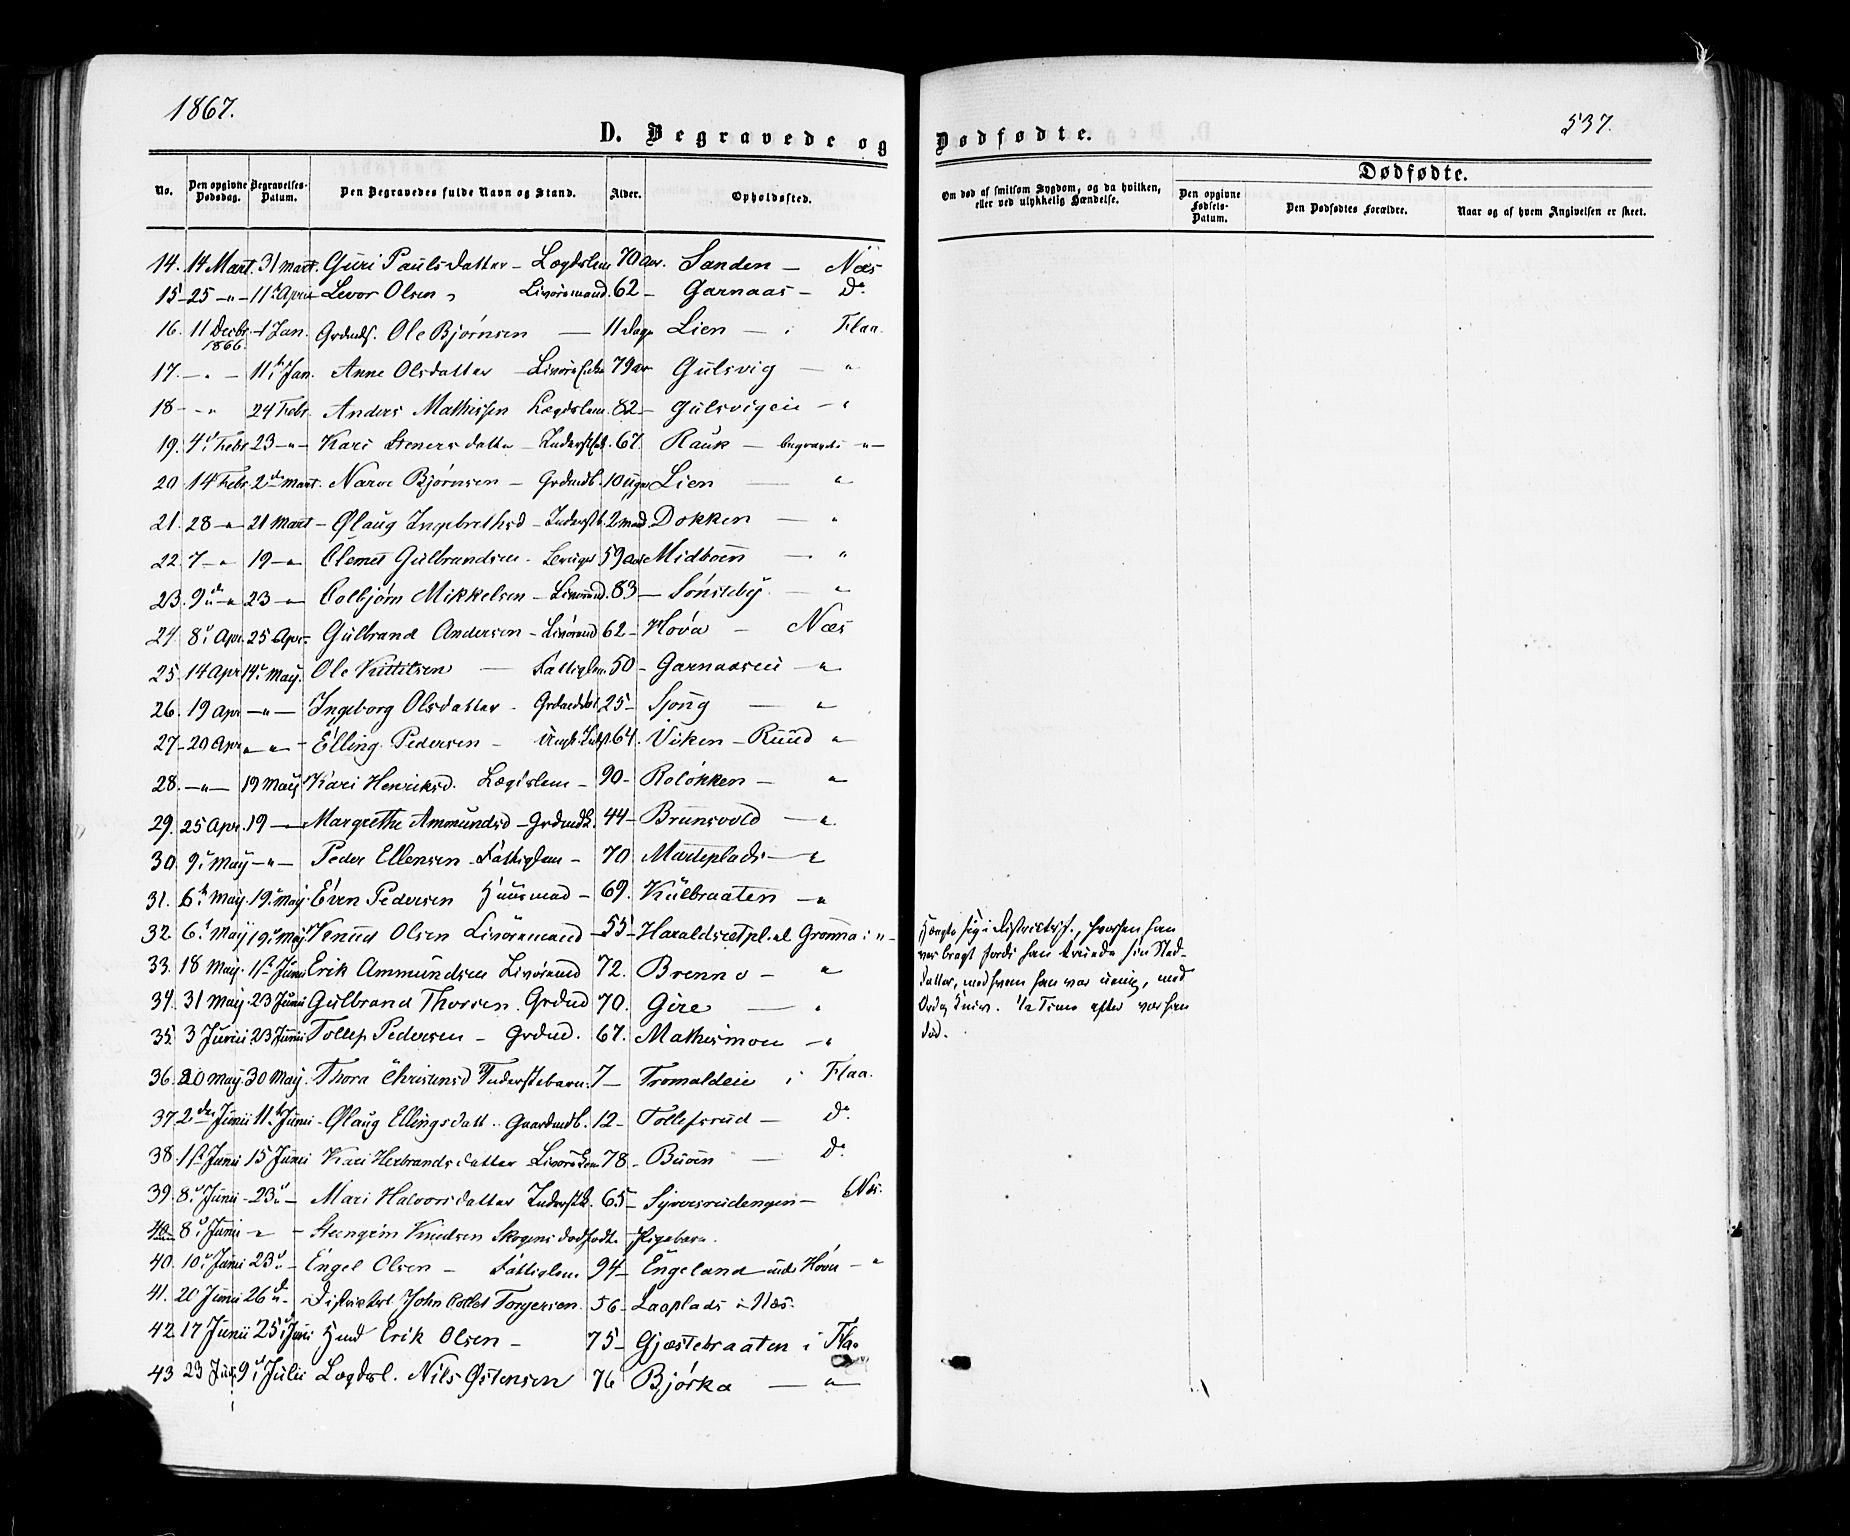 1867.
537.
D. Begravede og Dødfødte.
No. Den opgivne Dødsdag. Begravelses-Datum. Den Begravedes fulde Navn og Stand. Alder. Opholdssted. Om død af smitsom Sygdom, og da hvilken, eller ved ulykkelig Hændelse. Dødfødte. Den opgivne Fødsels-Datum. Den Dødfødtes Forældre. Naar og af hvem Angivelsen er skeet.
14. 14 Mart. 31 mart. Guri Paulsdatter – Lægdslem 70 aar. Sanden – Næs
15 – 25 –"– 11 April Levor Olsen, Livøremand. 62 – Garnaas – Do.
16. 11 Decbr. 1866. 1 Jan. Grdmds. Ole Bjørnsen – 11 Dage Lien – i Flaa.
17. – " – 11 Jan. Anne Olsdatter – 79 aar Gulsvig – "
18 – – " 24 Febr. Anders Mathissen Lægdslem. 82 – Gulsvigeie – "
19. 4 Febr 23 –"– Kari Stenersdatter – 67. Rauk – begravet –"–
20 14 Febr. 2den mart. Narve Bjørnsen – Grdmdb. 10 uger Lien – "
21. 28 –"– 21 Mart – Ølaug Ingebrethsd – Inderstb. 2 mnd. Dokken – "
22. 7 –"– 19 –"– Clemet Gulbrandsen – 59 aar Midboen – "
23. 9de –"– 23 –"– Colbjørn Mikkelsen – Livørmd. 83 – Sønsteby – "
24. 8 Apr. 25 Apr. Gulbrand Andersen – Livørmd 62 – Hova – Næs
25. 14 Apr. 14 May. Ole Kittilsen – Fattiglem 50 – Garnaaseie – "
26. 19 Apr –"– Ingeborg Olsdatter – 25 – Sjong – "
27 – 20 Apr " " – Elling Pedersen – 64. Viken – Ruud "
28. –"– 19 May Kari Henriksd. Lægdslem – 90 – Roløkken – "
29. 25 Apr. 19 –"– Margrethe Ammundsd – Grdmdk. 44 – Brunsvold – "
30. 9 May –"– Peder Ellensen – Fattiglem – 70 Marteplads – "
31. 6 May. 19 May. Even Pedersen Huusmad – 69. Kulbraaten – "
32. 6 May 19 May Knud Olsen Livøremand – 55 – Haraldsætpl. al Grønna i "– Hængte sig i Distriktsf., hvorhen han
var bragt fordi han truede sin Sted-
datter, med hvem han var uenig, med
Ord og Kniv. ½ Time efter var han
død.
33. 18 May. 1st Junii Erik Ammundsen Livørmd 72. Brenno – "
34. 31 May. 23 Junii Gulbrand Thorsen. Grdmd 70. Gire – "
35. 3 Junii 23 Junii Tollef Pedersen – Grdmd. 67. Mathismoen – "
36. 20 May. 30 May. Thora Christensd Inderstebarn. 7 – Tromaldeie i Flaa.
37. 2den Junii 11te Junii – Ølaug Ellingsdatt. Gaardmdb. 12 – Tollefsrud – Do.
38. 1st Junii 15 Junii Kari Herbrandsdatter 78 – Buven – Do.
39. 8 Junii – 23 – Mari Halvorsdatter Inderstk. 65 – Syversrudengen – Næs.
40 8 Junii –"– Steengrim Knudsen Skogens dødfødte Pigebarn.
40. 10 Junii 23 – Engel Olsen – Fattiglem 94 – Engeland under Hova – "
41. 20 Junii 26 – Distriktsl. John Collet Torgersen. 56 – Laaplads i Næs.
42 17 Junii 25 Junii Hmd Erik Olsen – 75 – Gjæstebraaten i Flaa
43 23 Juni 9 Julii Lægdsl. Nils Østensen 76 Bjørka – "